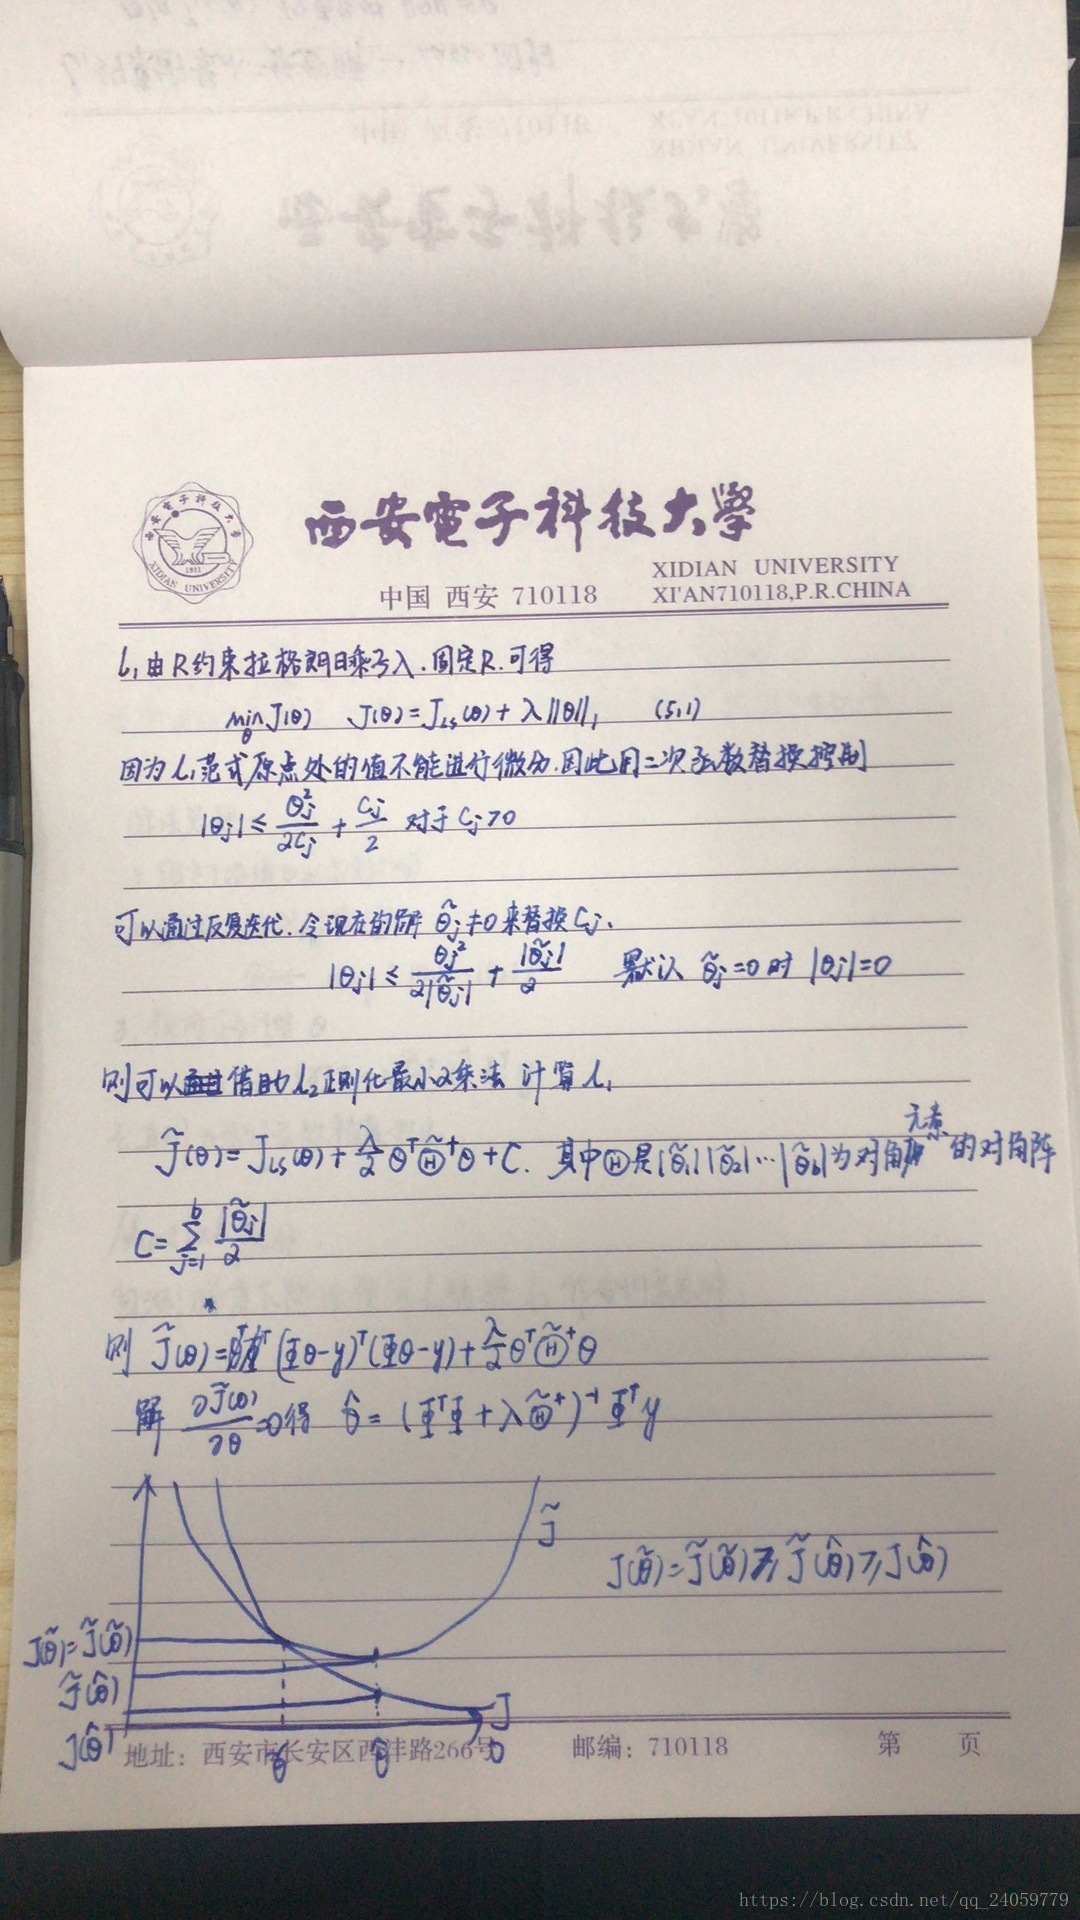 西安電子科技大學
XIDIAN UNIVERSITY
中国 西安 710118 XI'AN710118,P.R.CHINA
l₁由R约束拉格朗日乘子入.固定R.可得
min_θ J(θ) J(θ)=J_LS(θ)+λ||θ||₁ (5.1)
因为l₁范式原点处的值不能进行微分.因此用二次函数替换控制
|θj| ≤ θj²/2Cj + Cj/2 对于 Cj>0
可以通过反复迭代.令现在的解 θ̃j≠0来替换Cj.
|θj| ≤ θj²/2|θ̃j| + |θ̃j|/2 默认 θ̃j=0时 |θj|=0
则可以借助l₂正则化最小二乘法 计算l₁
元素
J̃(θ)=J_LS(θ)+λ/2 θᵀΘ̃⁺θ+C. 其中Θ是|θ̃₁||θ̃₂|…|θ̃b|为对角 的对角阵
C=∑_{j=1}^{b} |θ̃j|/2
则 J̃(θ)= (Φθ-y)ᵀ(Φθ-y)+λ/2 θᵀΘ̃⁺θ
解 ∂J̃(θ)/∂θ=0得 θ̂=(ΦᵀΦ+λΘ̃⁺)⁻¹Φᵀy
J̃
J(θ̃)=J̃(θ̃)≥J̃(θ̂)≥J(θ̂)
J(θ̃)=J̃(θ̃)
J̃(θ̂)
J
J(θ̂)
θ̃ θ̂ θ
地址：西安市长安区西沣路266号 邮编：710118 第 页
https://blog.csdn.net/qq_24059779